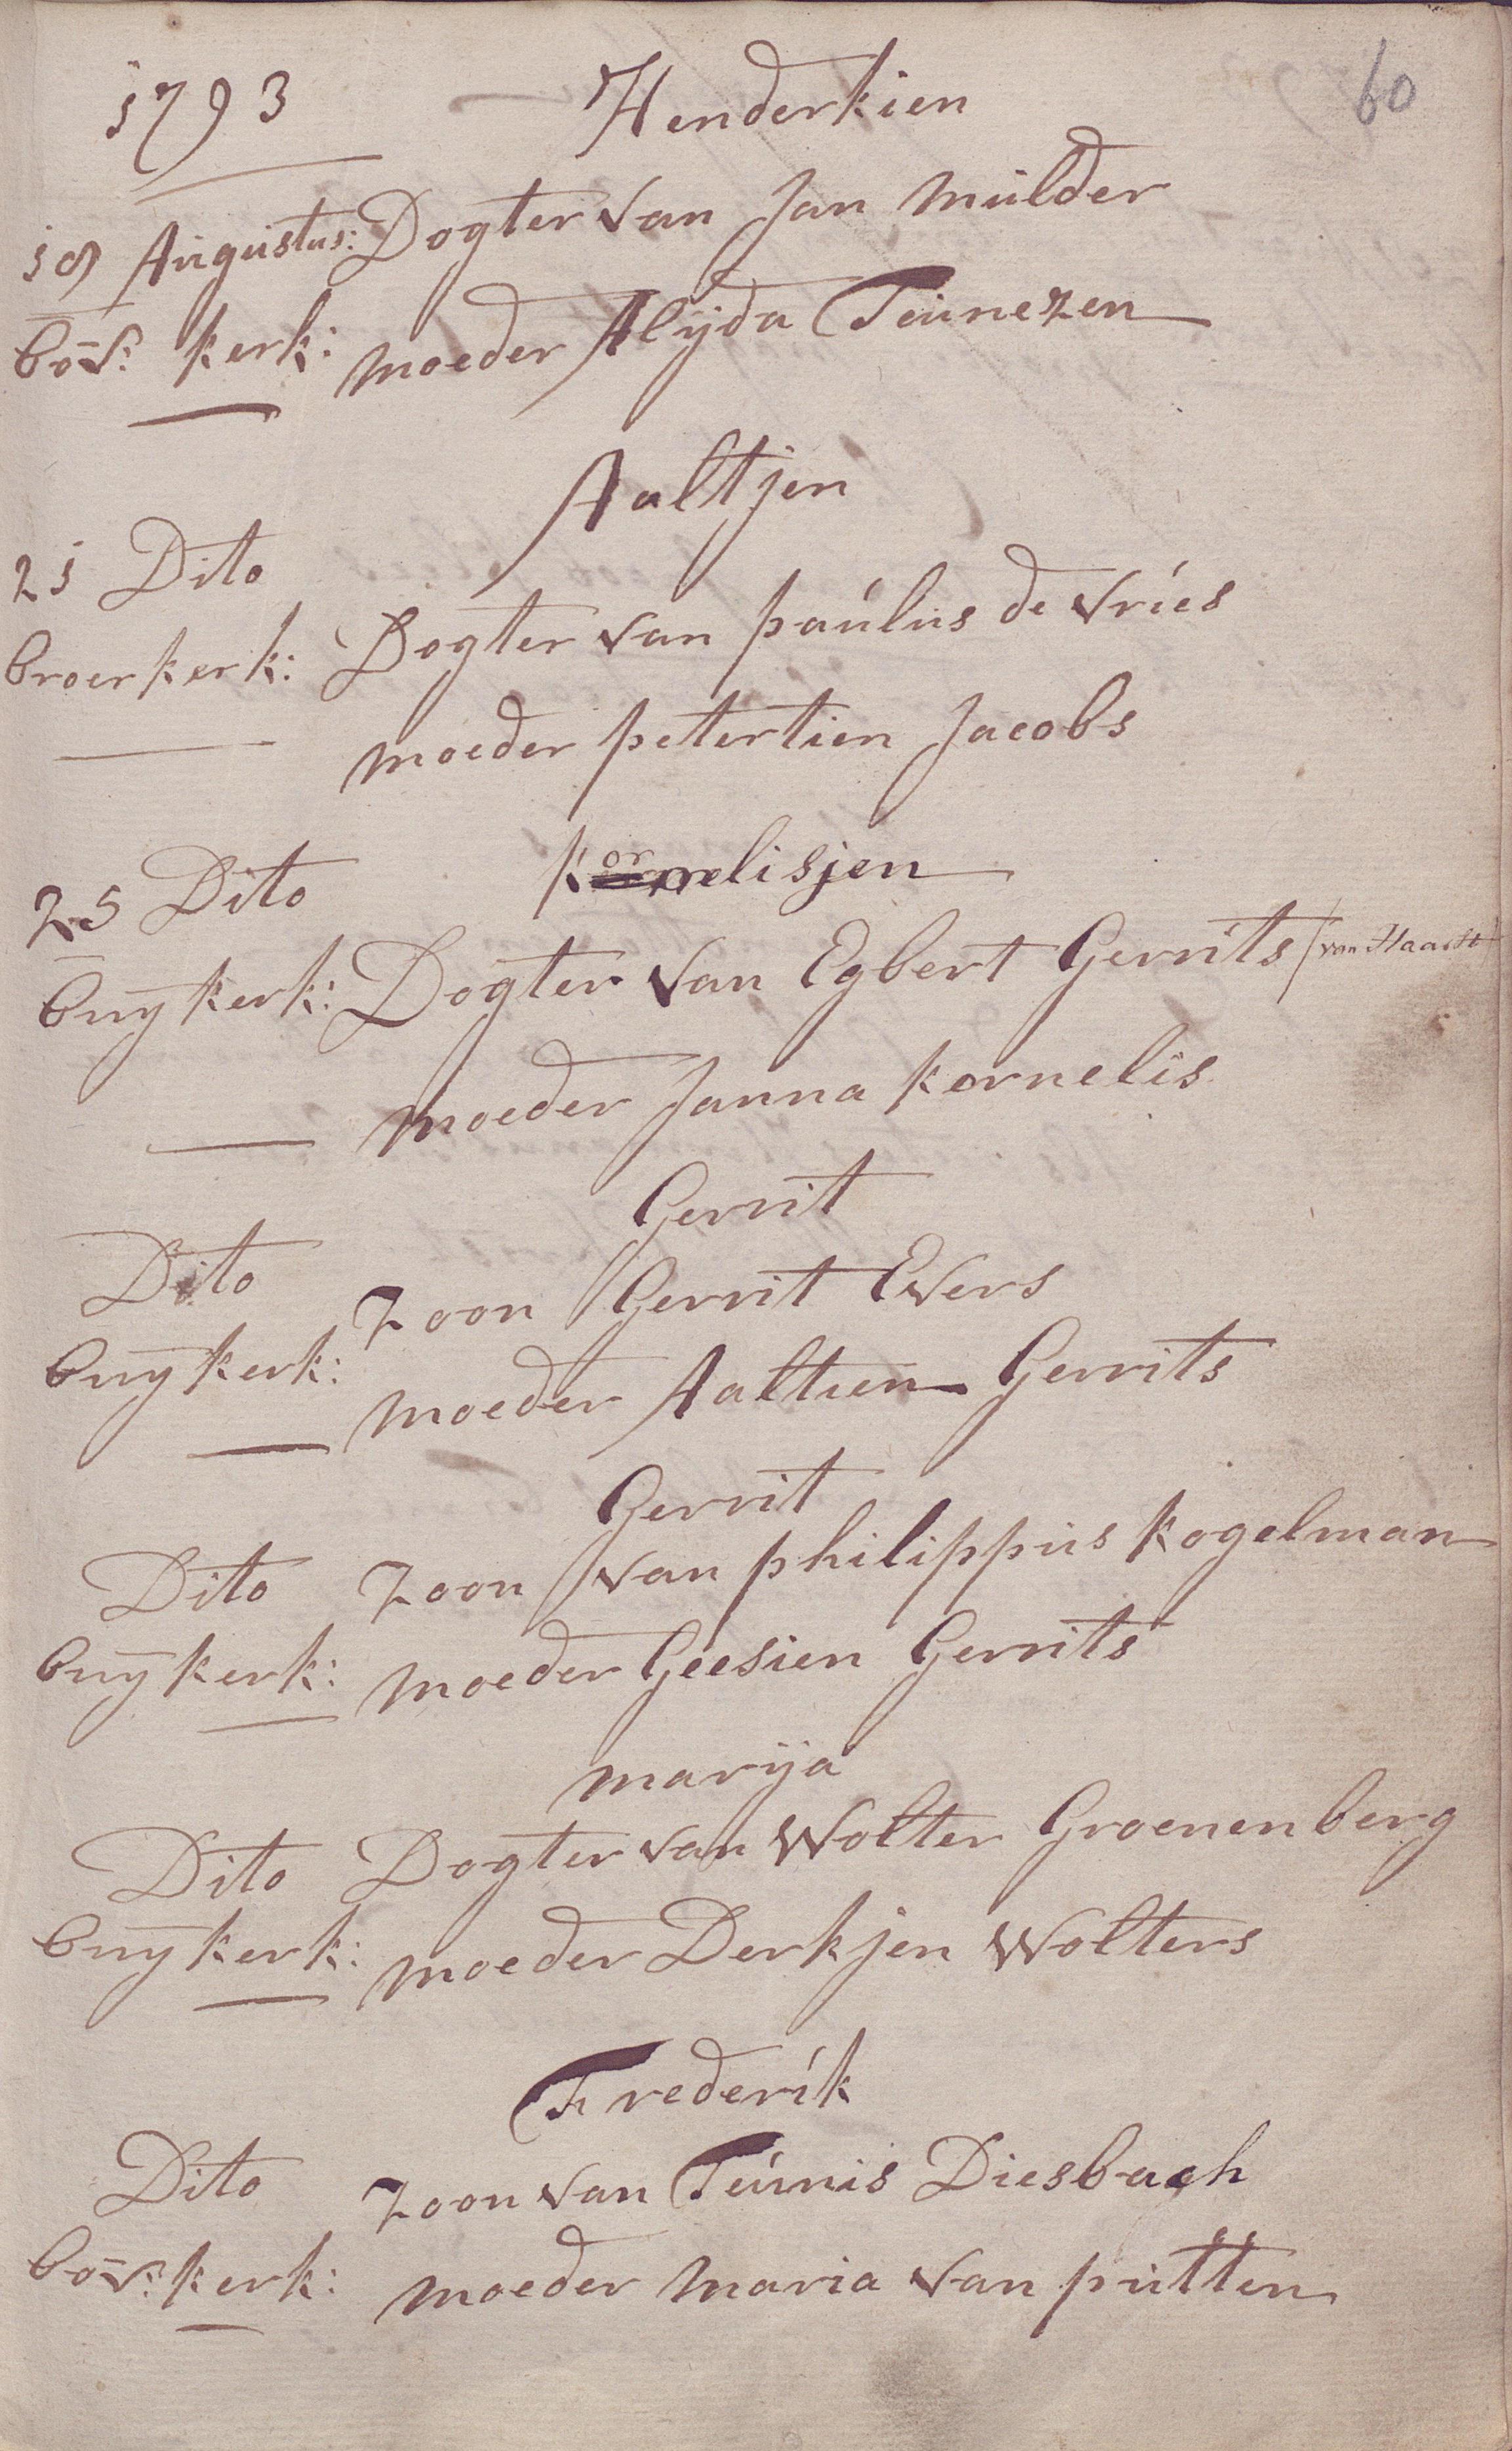 1793
60
Henderkien
18 Augustus: Dogter van Jan mulder
bov: kerk: moeder Alyda Teunezen
Aaltjen
21 Dito
broerkerk: Dogter van paulus de vries
moeder petertien Jacobs
25 Dito Kornelisjen
buy kerk: Dogter van Egbert Gerrits /van Haarst
moeder Janna kornelis
Gerrit
Dito Zoon Gerrit Evers
buy kerk: moeder Aaltien Gerrits
Gerrit
Dito Zoon van philippus kogelman
buy kerk: moeder Geesien Gerrits
marija
Dito Dogter van Wolter Groenenberg
buy kerk: moeder Derkjen Wolters
Frederik
Dito Zoon van Teunis Diesbach
bov: kerk: moeder maria van putten